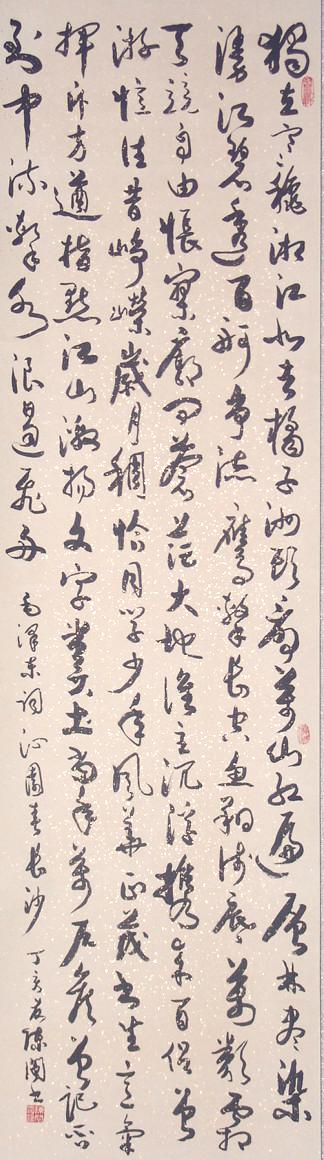 獨立寒秋湘江北去橘子洲頭看萬山紅遍層林盡染
漫江碧透百舸爭流鷹擊長空魚翔淺底萬類霜
天競自由悵寥廓問蒼茫大地誰主沉浮攜來百侶曾
游憶往昔崢嶸歲月稠恰同學少年風華正茂書生意氣
揮斥方遒指點江山激揚文字糞土當年萬戶侯曾記否
到中流擊水浪遏飛舟
毛澤東詞沁園春長沙 丁亥